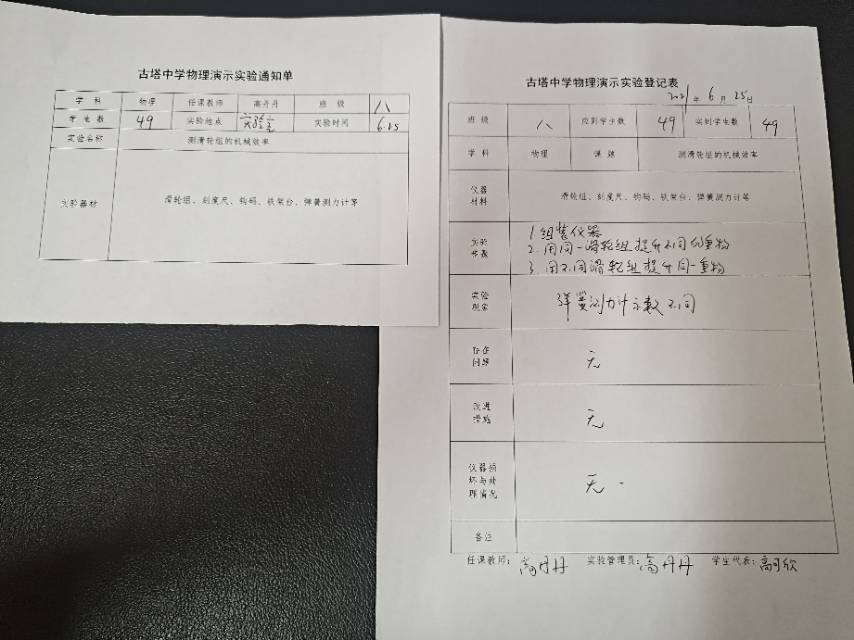 古塔中学物理演示实验通知单
学 科 物理 任课教师 高丹丹 班 级 八
学 生 数 49 实验地点 实验室 实验时间 6.25
实验名称 测滑轮组的机械效率
实验器材 滑轮组、刻度尺、钩码、铁架台、弹簧测力计等
古塔中学物理演示实验登记表
2021年 6月 25日
班 级 八 应到学生数 49 实到学生数 49
学 科 物理 课 题 测滑轮组的机械效率
仪器材料 滑轮组、刻度尺、钩码、铁架台、弹簧测力计等
实验步骤
1.组装仪器
2.用同一滑轮组提升不同的重物
3.用不同滑轮组提升同一重物
实验现象 弹簧测力计示数不同
存在问题 无
改进措施 无
仪器损坏与处理情况 无.
备注
任课教师：高丹丹 实验管理员：高丹丹 学生代表：高可欣